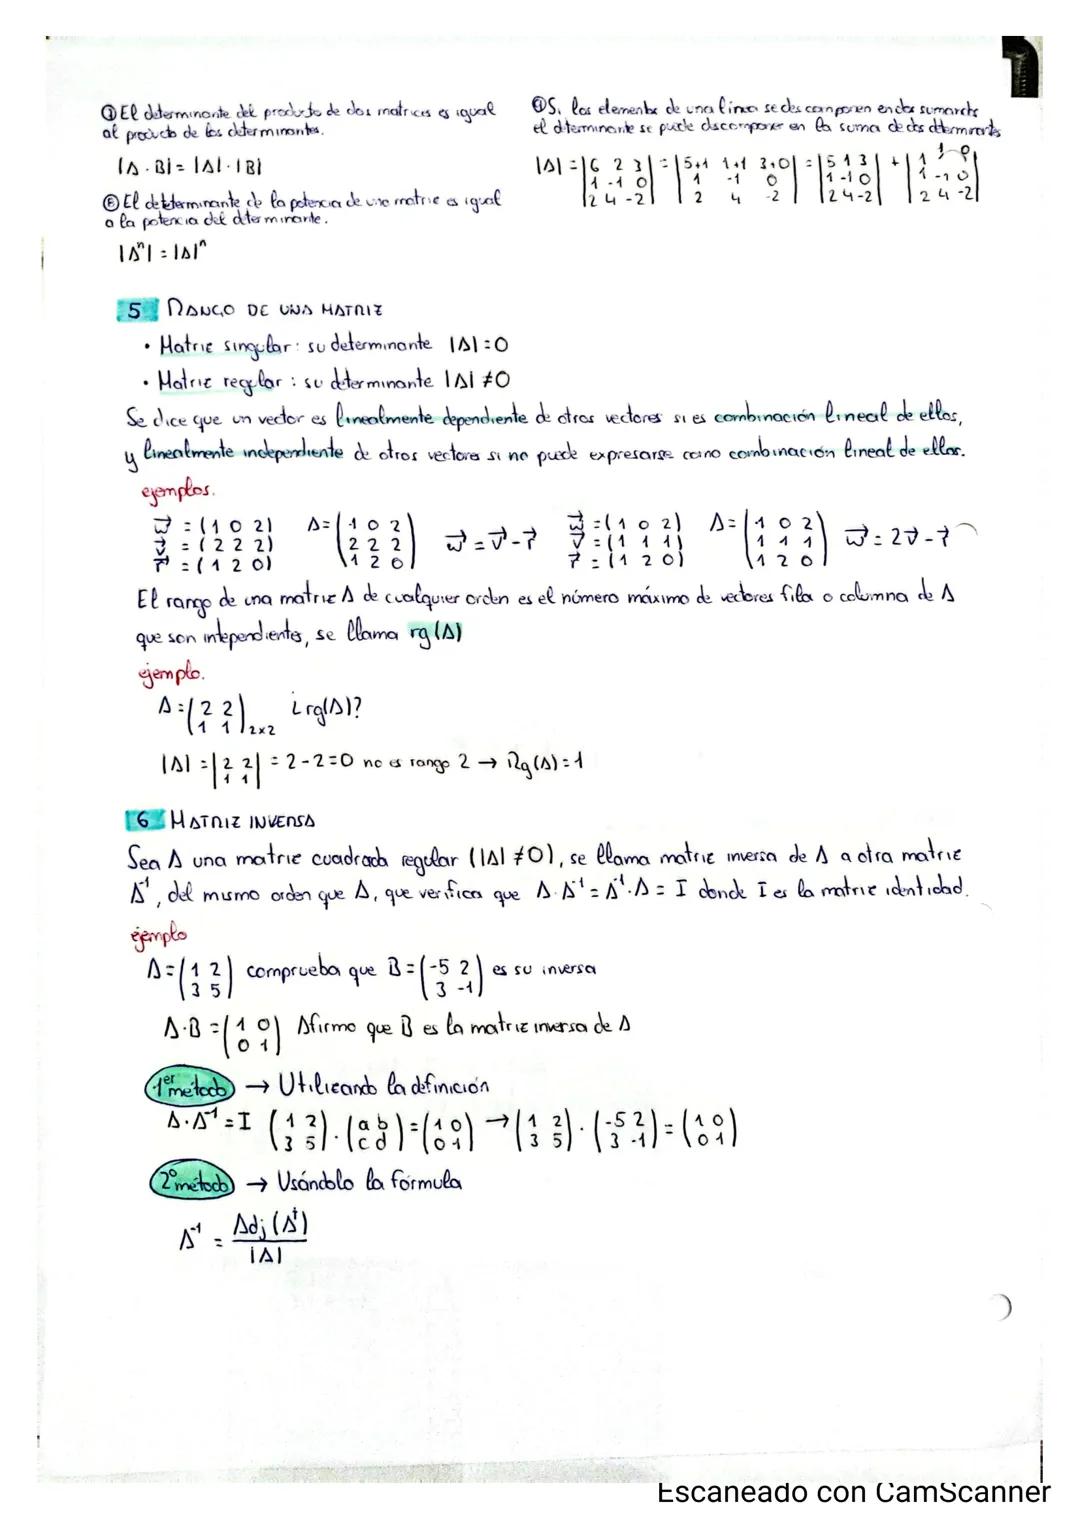 ⑦ El determinante del producto de dos matrices es igual
al producto de los determinantes.
|A · B| = |A| · |B|
⑧ El detterminante de la potencia de una matriz es igual
a la potencia del determinante.
|Aⁿ| = |A|ⁿ
Si los elementos de una línea se descomponen en dos sumandos
el determinante se puede descomponer en la suma de dos determinantes
|A| = |6 2 3| = |5+1 1+1 3+0| = |5 1 3| + |1 1 0|
|1 -1 0| |1 -1 0| |1 -1 0| |1 -1 0|
|2 4 -2| |2 4 -2| |2 4 -2| |2 4 -2|
5 RANGO DE UNA MATRIZ
• Matriz singular: su determinante |A| = 0
• Matriz regular: su determinante |A| ≠ 0
Se dice que un vector es linealmente dependiente de otros vectores si es combinación lineal de ellos,
y linealmente independiente de otros vectores si no puede expresarse como combinación lineal de ellos.
ejemplos.
w⃗ = (1 0 2) A = (1 0 2) w⃗ = (1 0 2) A = (1 0 2)
v⃗ = (2 2 2) (2 2 2) w⃗ = v⃗ - r⃗ v⃗ = (1 1 1) (1 1 1) w⃗ = 2v⃗ - r⃗
r⃗ = (1 2 0) (1 2 0) r⃗ = (1 2 0) (1 2 0)
El rango de una matriz A de cualquier orden es el número máximo de vectores fila o columna de A
que son independientes, se llama rg(A)
ejemplo.
A = (2 2) ¿rg(A)?
(1 1)2×2
|A| = |2 2| = 2-2=0 no es rango 2 → Rg(A) = 1
|1 1|
6 MATRIZ INVERSA
Sea A una matriz cuadrada regular (|A| ≠ 0), se llama matriz inversa de A a otra matriz
A⁻¹, del mismo orden que A, que verifica que A·A⁻¹ = A⁻¹·A = I donde I es la matriz identidad.
ejemplo
A = (1 2) comprueba que B = (-5 2) es su inversa
(3 5) (3 -1)
A·B = (1 0) Afirmo que B es la matriz inversa de A
(0 1)
1er método → Utilizando la definición
A·A⁻¹ = I (1 2) · (a b) = (1 0) → (1 2) · (-5 2) = (1 0)
(3 5) (c d) (0 1) (3 5) (3 -1) (0 1)
2º método → Usándolo la fórmula
A⁻¹ = Adj(Aᵗ)
|A|
Escaneado con CamScanner